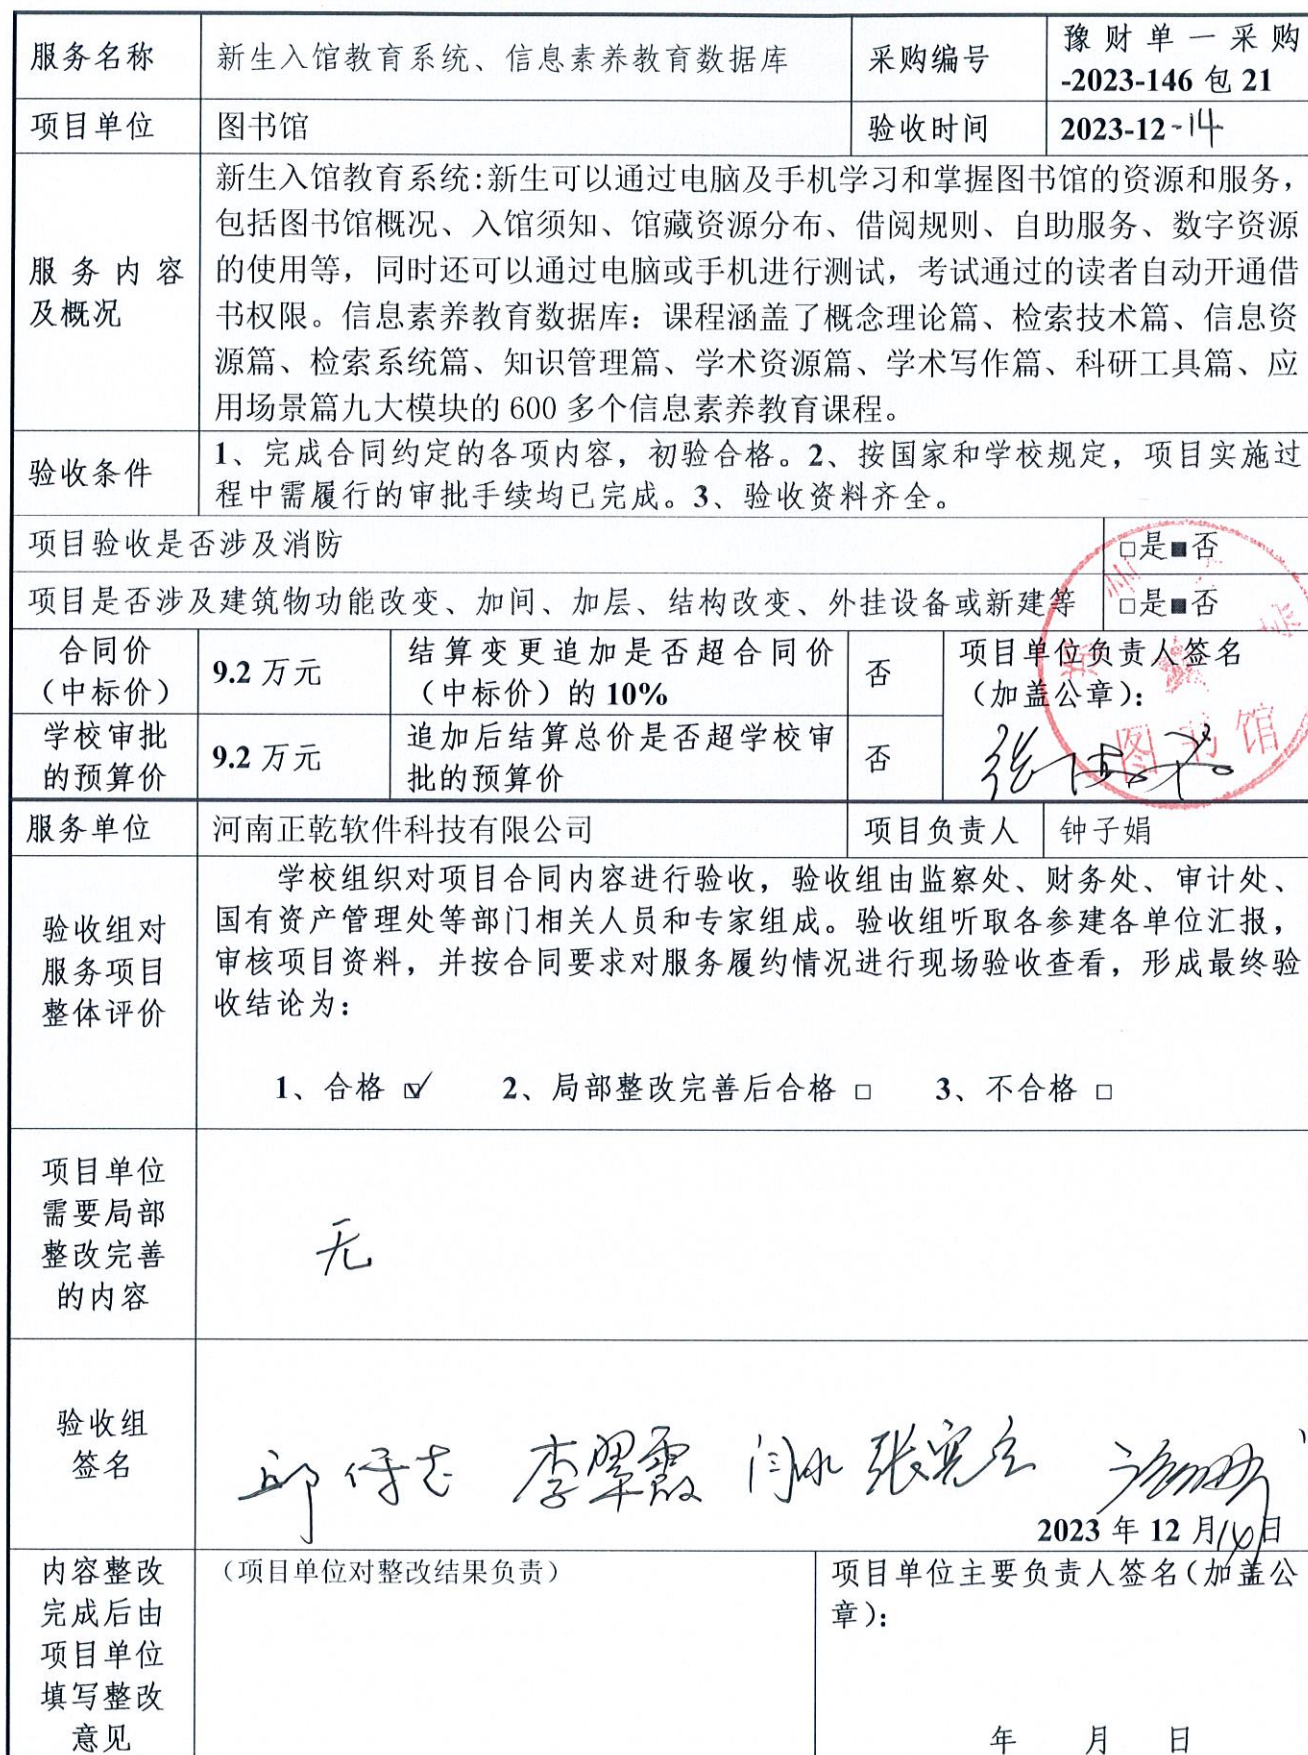 服务名称 新生入馆教育系统、信息素养教育数据库 采购编号 豫财单一采购
-2023-146 包 21
项目单位 图书馆 验收时间 2023-12-14
服务内容
及概况
新生入馆教育系统:新生可以通过电脑及手机学习和掌握图书馆的资源和服务，
包括图书馆概况、入馆须知、馆藏资源分布、借阅规则、自助服务、数字资源
的使用等，同时还可以通过电脑或手机进行测试，考试通过的读者自动开通借
书权限。信息素养教育数据库：课程涵盖了概念理论篇、检索技术篇、信息资
源篇、检索系统篇、知识管理篇、学术资源篇、学术写作篇、科研工具篇、应
用场景篇九大模块的 600 多个信息素养教育课程。
验收条件
1、完成合同约定的各项内容，初验合格。2、按国家和学校规定，项目实施过
程中需履行的审批手续均已完成。3、验收资料齐全。
项目验收是否涉及消防 □是■否
项目是否涉及建筑物功能改变、加间、加层、结构改变、外挂设备或新建等 □是■否
合同价
（中标价）
9.2 万元
结算变更追加是否超合同价
（中标价）的 10%
否
项目单位负责人签名
（加盖公章）：
学校审批
的预算价
9.2 万元
追加后结算总价是否超学校审
批的预算价
否
图书馆
服务单位 河南正乾软件科技有限公司 项目负责人 钟子娟
验收组对
服务项目
整体评价
学校组织对项目合同内容进行验收，验收组由监察处、财务处、审计处、
国有资产管理处等部门相关人员和专家组成。验收组听取各参建各单位汇报，
审核项目资料，并按合同要求对服务履约情况进行现场验收查看，形成最终验
收结论为：
1、合格 ☑ 2、局部整改完善后合格 □ 3、不合格 □
项目单位
需要局部
整改完善
的内容
无
验收组
签名
李翠霞 闫冰
2023 年 12 月 14 日
内容整改
完成后由
项目单位
填写整改
意见
（项目单位对整改结果负责）
项目单位主要负责人签名（加盖公
章）：
年 月 日